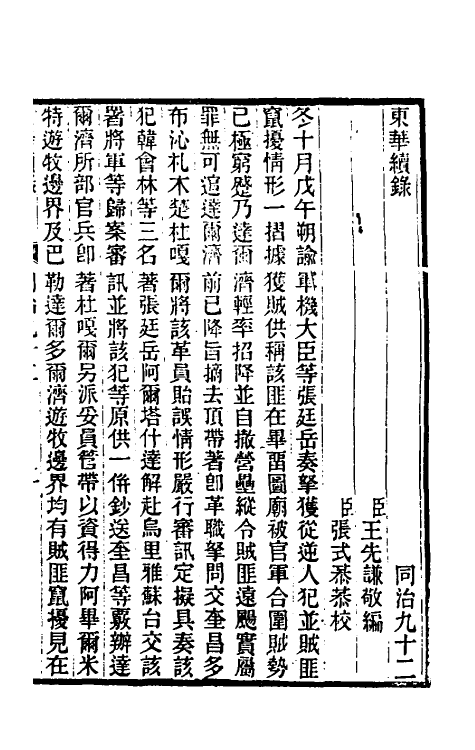 東華續錄
同治九十二
臣王先謙敬編
臣張式恭恭校
冬十月戊午朔諭軍機大臣等張廷岳奏拏獲從逆人犯並賊匪
竄擾情形一摺據獲賊供稱該匪在畢留圖廟被官軍合圍賊勢
已極窮蹙乃達爾濟輕率招降並自撤營壘縱令賊匪遠颺實屬
罪無可逭達爾濟前已降旨摘去頂帶著卽革職拏問交奎昌多
布沁札木楚杜嘎爾將該革員貽誤情形嚴行審訊定擬具奏該
犯韓會林等三名著張廷岳阿爾塔什達解赴烏里雅蘇台交該
署將軍等歸案審訊並將該犯等原供一併鈔送奎昌等覈辦達
爾濟所部官兵卽著杜嘎爾另派妥員管帶以資得力阿畢爾米
特遊牧邊界及巴勒達爾多爾濟遊牧邊界均有賊匪竄擾見在